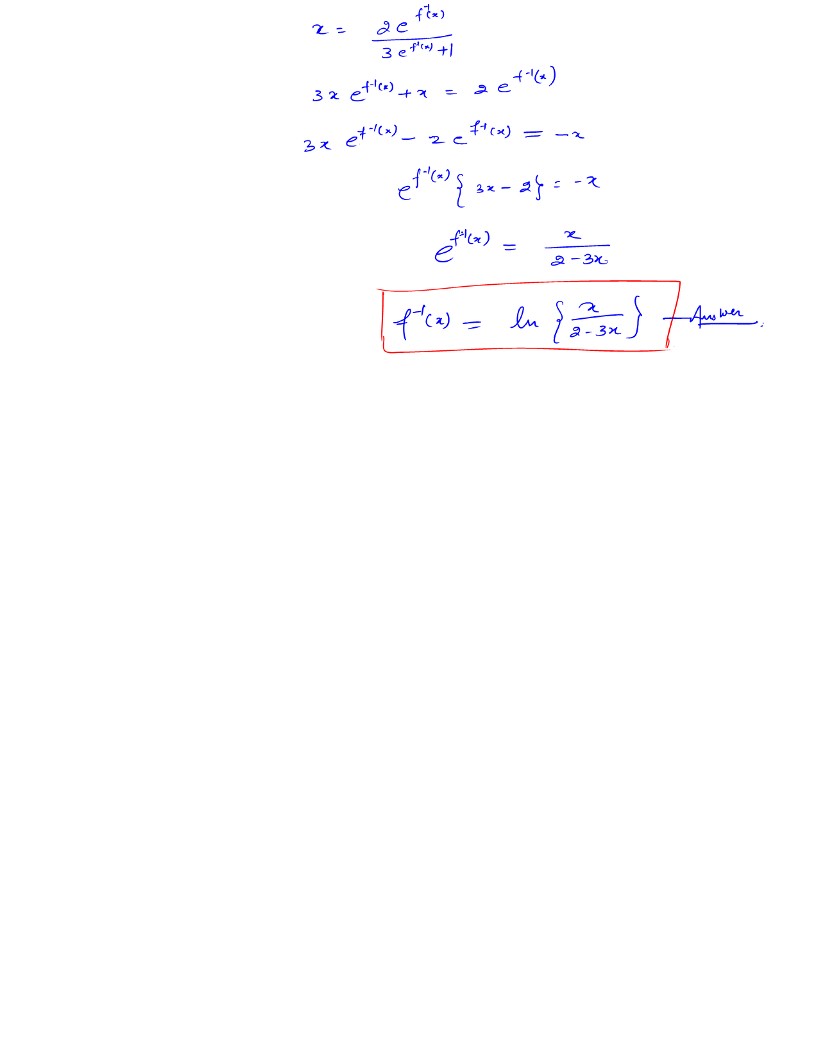 x = 2e^{f^{-1}(x)} / 3e^{f^{-1}(x)}+1
3x e^{f^{-1}(x)} + x = 2 e^{f^{-1}(x)}
3x e^{f^{-1}(x)} − 2 e^{f^{-1}(x)} = −x
e^{f^{-1}(x)} { 3x − 2} = −x
e^{f^{-1}(x)} = x / 2−3x
f^{-1}(x) = ln { x / 2−3x } — Answer.